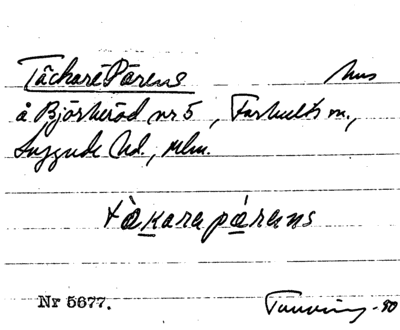 Täckaré Pärens hus
å Björkeröd nr 5, Farhult s n.,
Luggude hd., Mlm.
tàkarapárens
Nr 5677.
-50